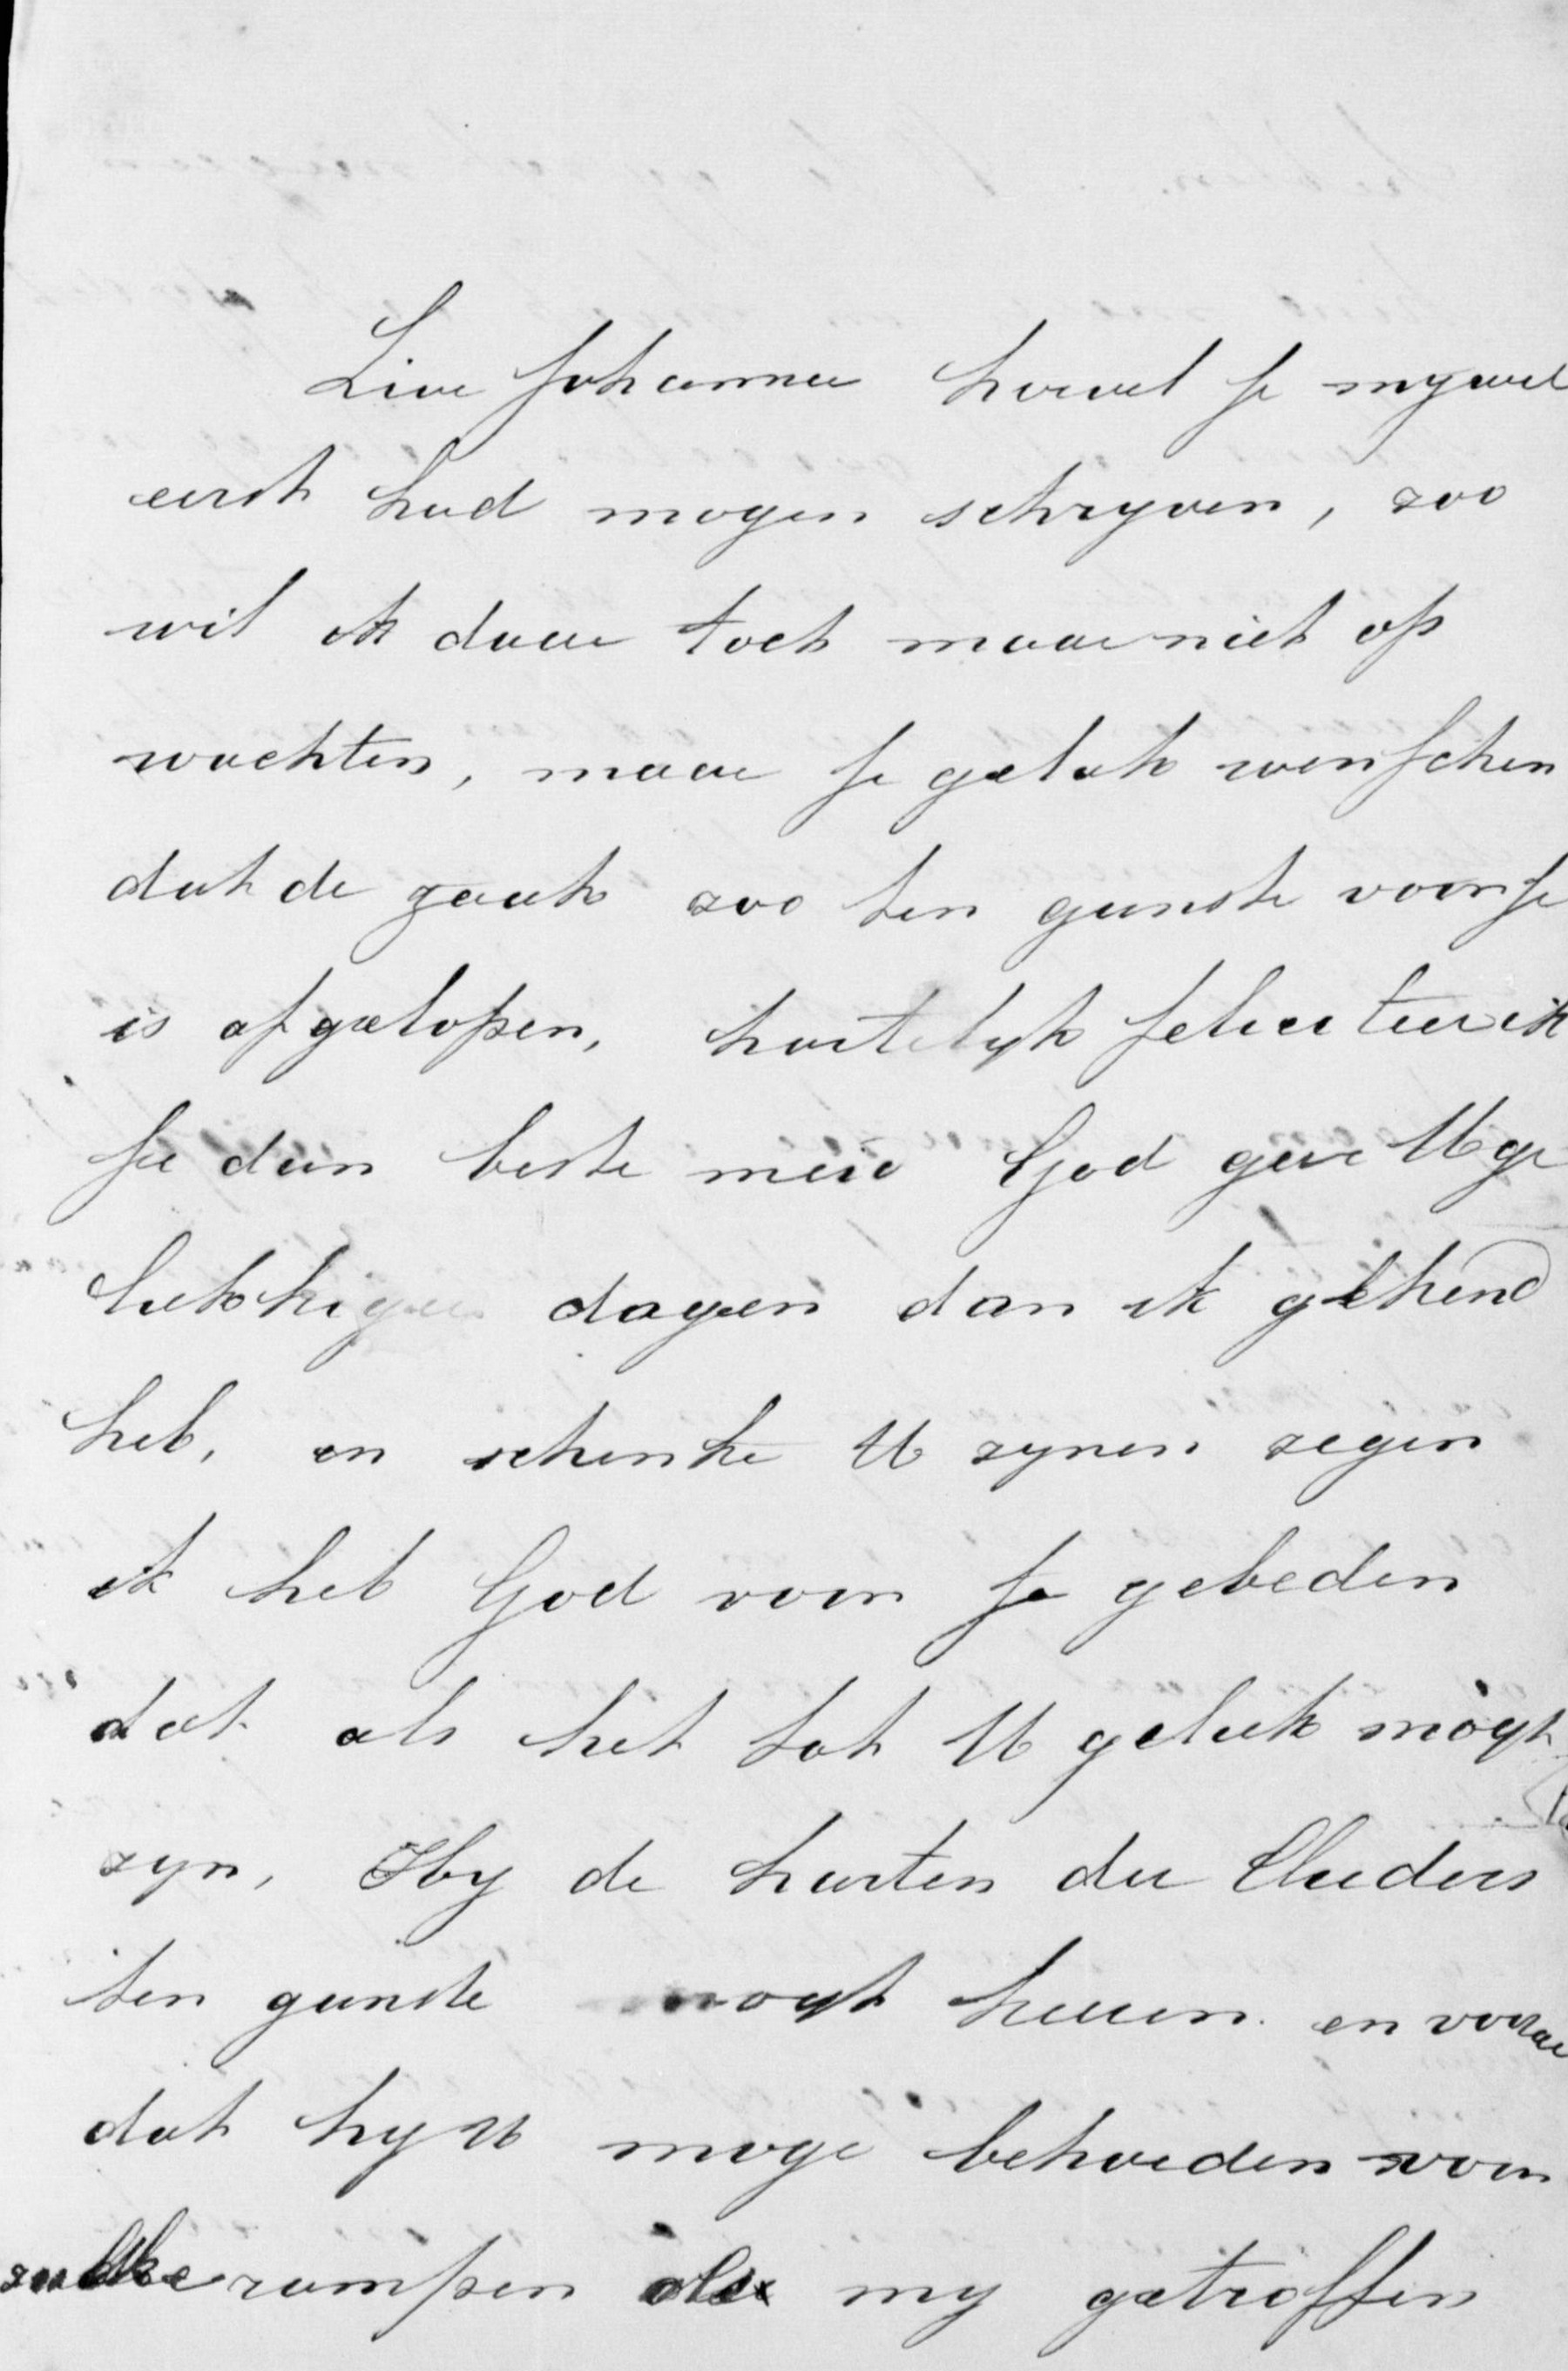 Lieve Johanna hoewel je my wel
eerst had mogen schryven, zoo
wil ik daar toch maar niet op
wachten, maar je geluk wenschen
dat de zaak zoo ten gunste voor je
is afgelopen, hartelyk feliciteer ik
je dan beste meid God geve U ge
lukkiger dagen dan ik gekend
heb, en schenke U zynen zegen
ik heb God voor je gebeden
dat als het tot U geluk mogt
zyn, Hy de harten der Ouders
ten gunste mogt keeren en vooral
dat hy U moge behoeden voor
zulke rampen als my getroffen